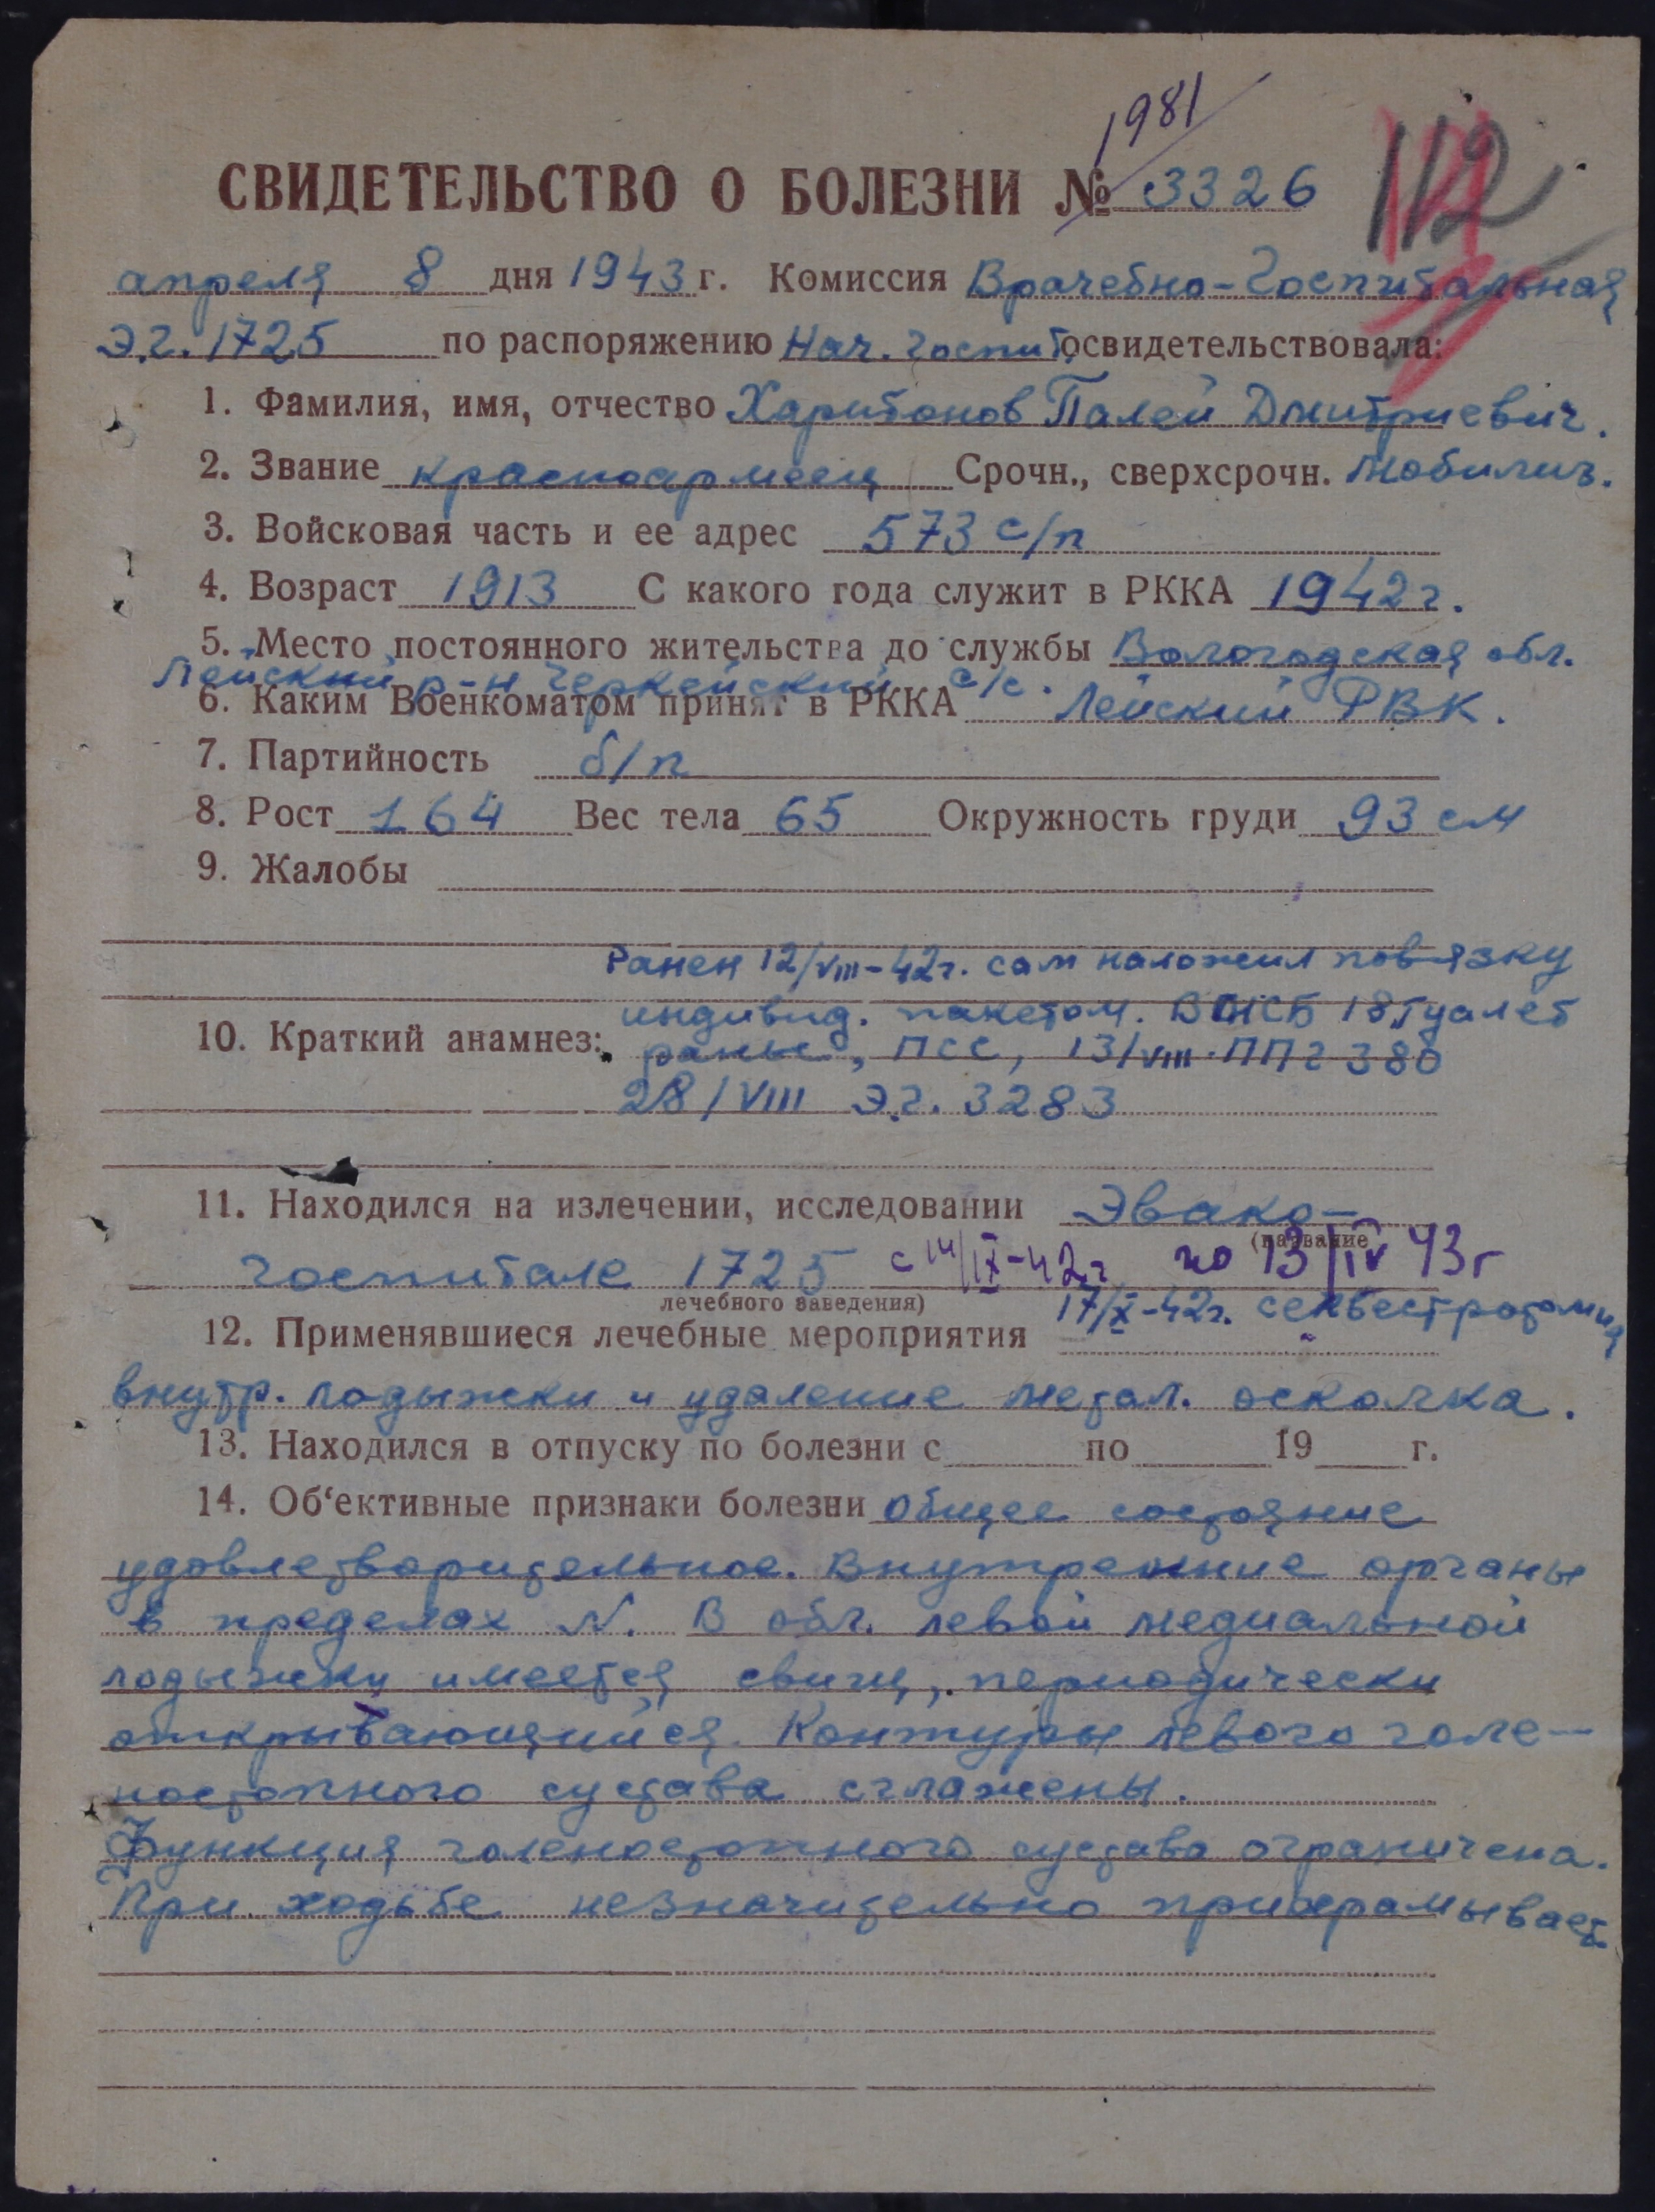 1981
СВИДЕТЕЛЬСТВО О БОЛЕЗНИ № 3326
112
апреля 8 дня 1943 г. Комиссия Врачебно-Госпитальная
Э.Г. 1725 по распоряжению Нач. госпит. освидетельствовала:
1. Фамилия, имя, отчество Харитонов Палей Дмитриевич.
2. Звание красноармеец Срочн., сверхсрочн. мобилиз.
3. Войсковая часть и ее адрес 573 с/п
4. Возраст 1913 С какого года служит в РККА 1942 г.
5. Место постоянного жительства до службы Вологодская обл.
Лейский р-н Черкейский с/с.
6. Каким Военкоматом принят в РККА Лейский РВК.
7. Партийность б/п
8. Рост 164 Вес тела 65 Окружность груди 93 см
9. Жалобы
Ранен 12/VIII-42г. сам наложил повязку
индивид. пакетом. 18 туалет
10. Краткий анамнез: раны, ПСС, 13/VIII. ППГ 380
28/VIII Э.Г. 3283
11. Находился на излечении, исследовании Эвако-
(название
госпитале 1725 с 14/IX-42г по 13/IV 43г
лечебного заведения)
17/X-42г. секвестротомия
12. Применявшиеся лечебные мероприятия
внутр. лодыжки и удаление метал. осколка.
13. Находился в отпуску по болезни с по 19 г.
14. Об'ективные признаки болезни Общее состояние
удовлетворительное. Внутренние органы
в пределах N. В обл. левой медиальной
лодыжки имеется свищ, периодически
открывающийся. Контуры левого голе-
ностопного сустава сглажены.
Функция голеностопного сустава ограничена.
При ходьбе незначительно прихрамывает